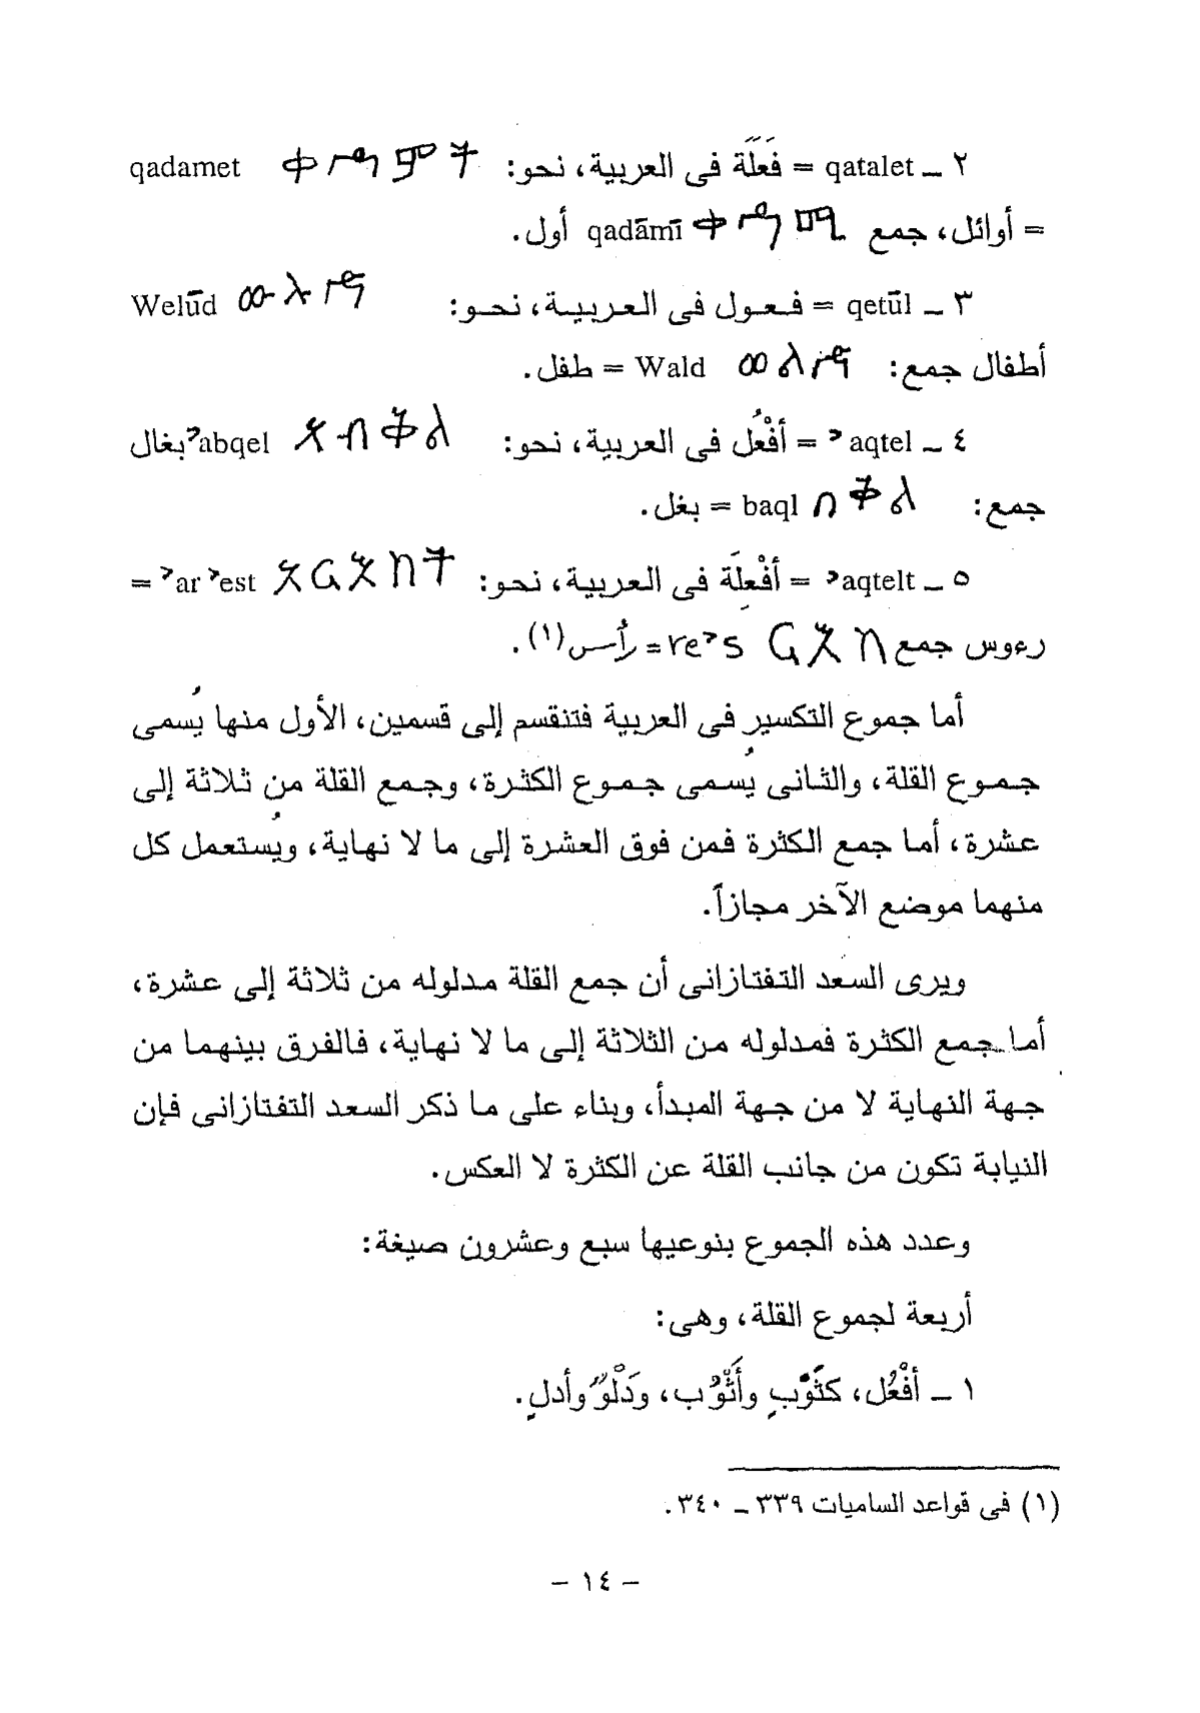 ٢ ـ qatalet = فَعَلَة فى العربية، نحو: ቀዳምት qadamet
= أوائل، جمع ቀዳሚ qadāmī أول.
٣ ـ qetūl = فـعـول فى العـربيـة، نحـو: ውሉድ Welūd
أطفال جمع: ወልድ Wald = طفل.
٤ ـ ʾaqtel = أفْعُل فى العربية، نحو: አብቅል ʾabqel بغال
جمع: በቅል baql = بغل.
٥ ـ ʾaqtelt = أفْعِلَة فى العربية، نحو: አርእስት ʾarʾest =
رءوس جمع ርእስ reʾs = رأس(١).
أما جموع التكسير فى العربية فتنقسم إلى قسمين، الأول منها يُسمى
جـمـوع القلة، والثـانى يُسـمى جـمـوع الكثـرة، وجـمع القلة من ثـلاثة إلى
عشرة، أمـا جمع الكثرة فمن فوق العشرة إلى ما لا نهاية، ويُستعمل كل
منهما موضع الآخر مجازاً.
ويرى السعد التفتازانى أن جمع القلة مدلوله من ثلاثة إلى عشرة،
أمـا جمع الكثرة فمدلوله من الثلاثة إلى ما لا نهاية، فالفرق بينهما من
جهة النهاية لا من جهة المبدأ، وبناء على ما ذكر السعد التفتازانى فإن
النيابة تكون من جانب القلة عن الكثرة لا العكس.
وعدد هذه الجموع بنوعيها سبع وعشرون صيغة:
أربعة لجموع القلة، وهى:
١ ـ أفْعُل، كثَوْبٍ وأَثْوُب، ودَلْوٌ وأدلٍ.
(١) فى قواعد الساميات ٣٣٩ ـ ٣٤٠.
- ١٤ -